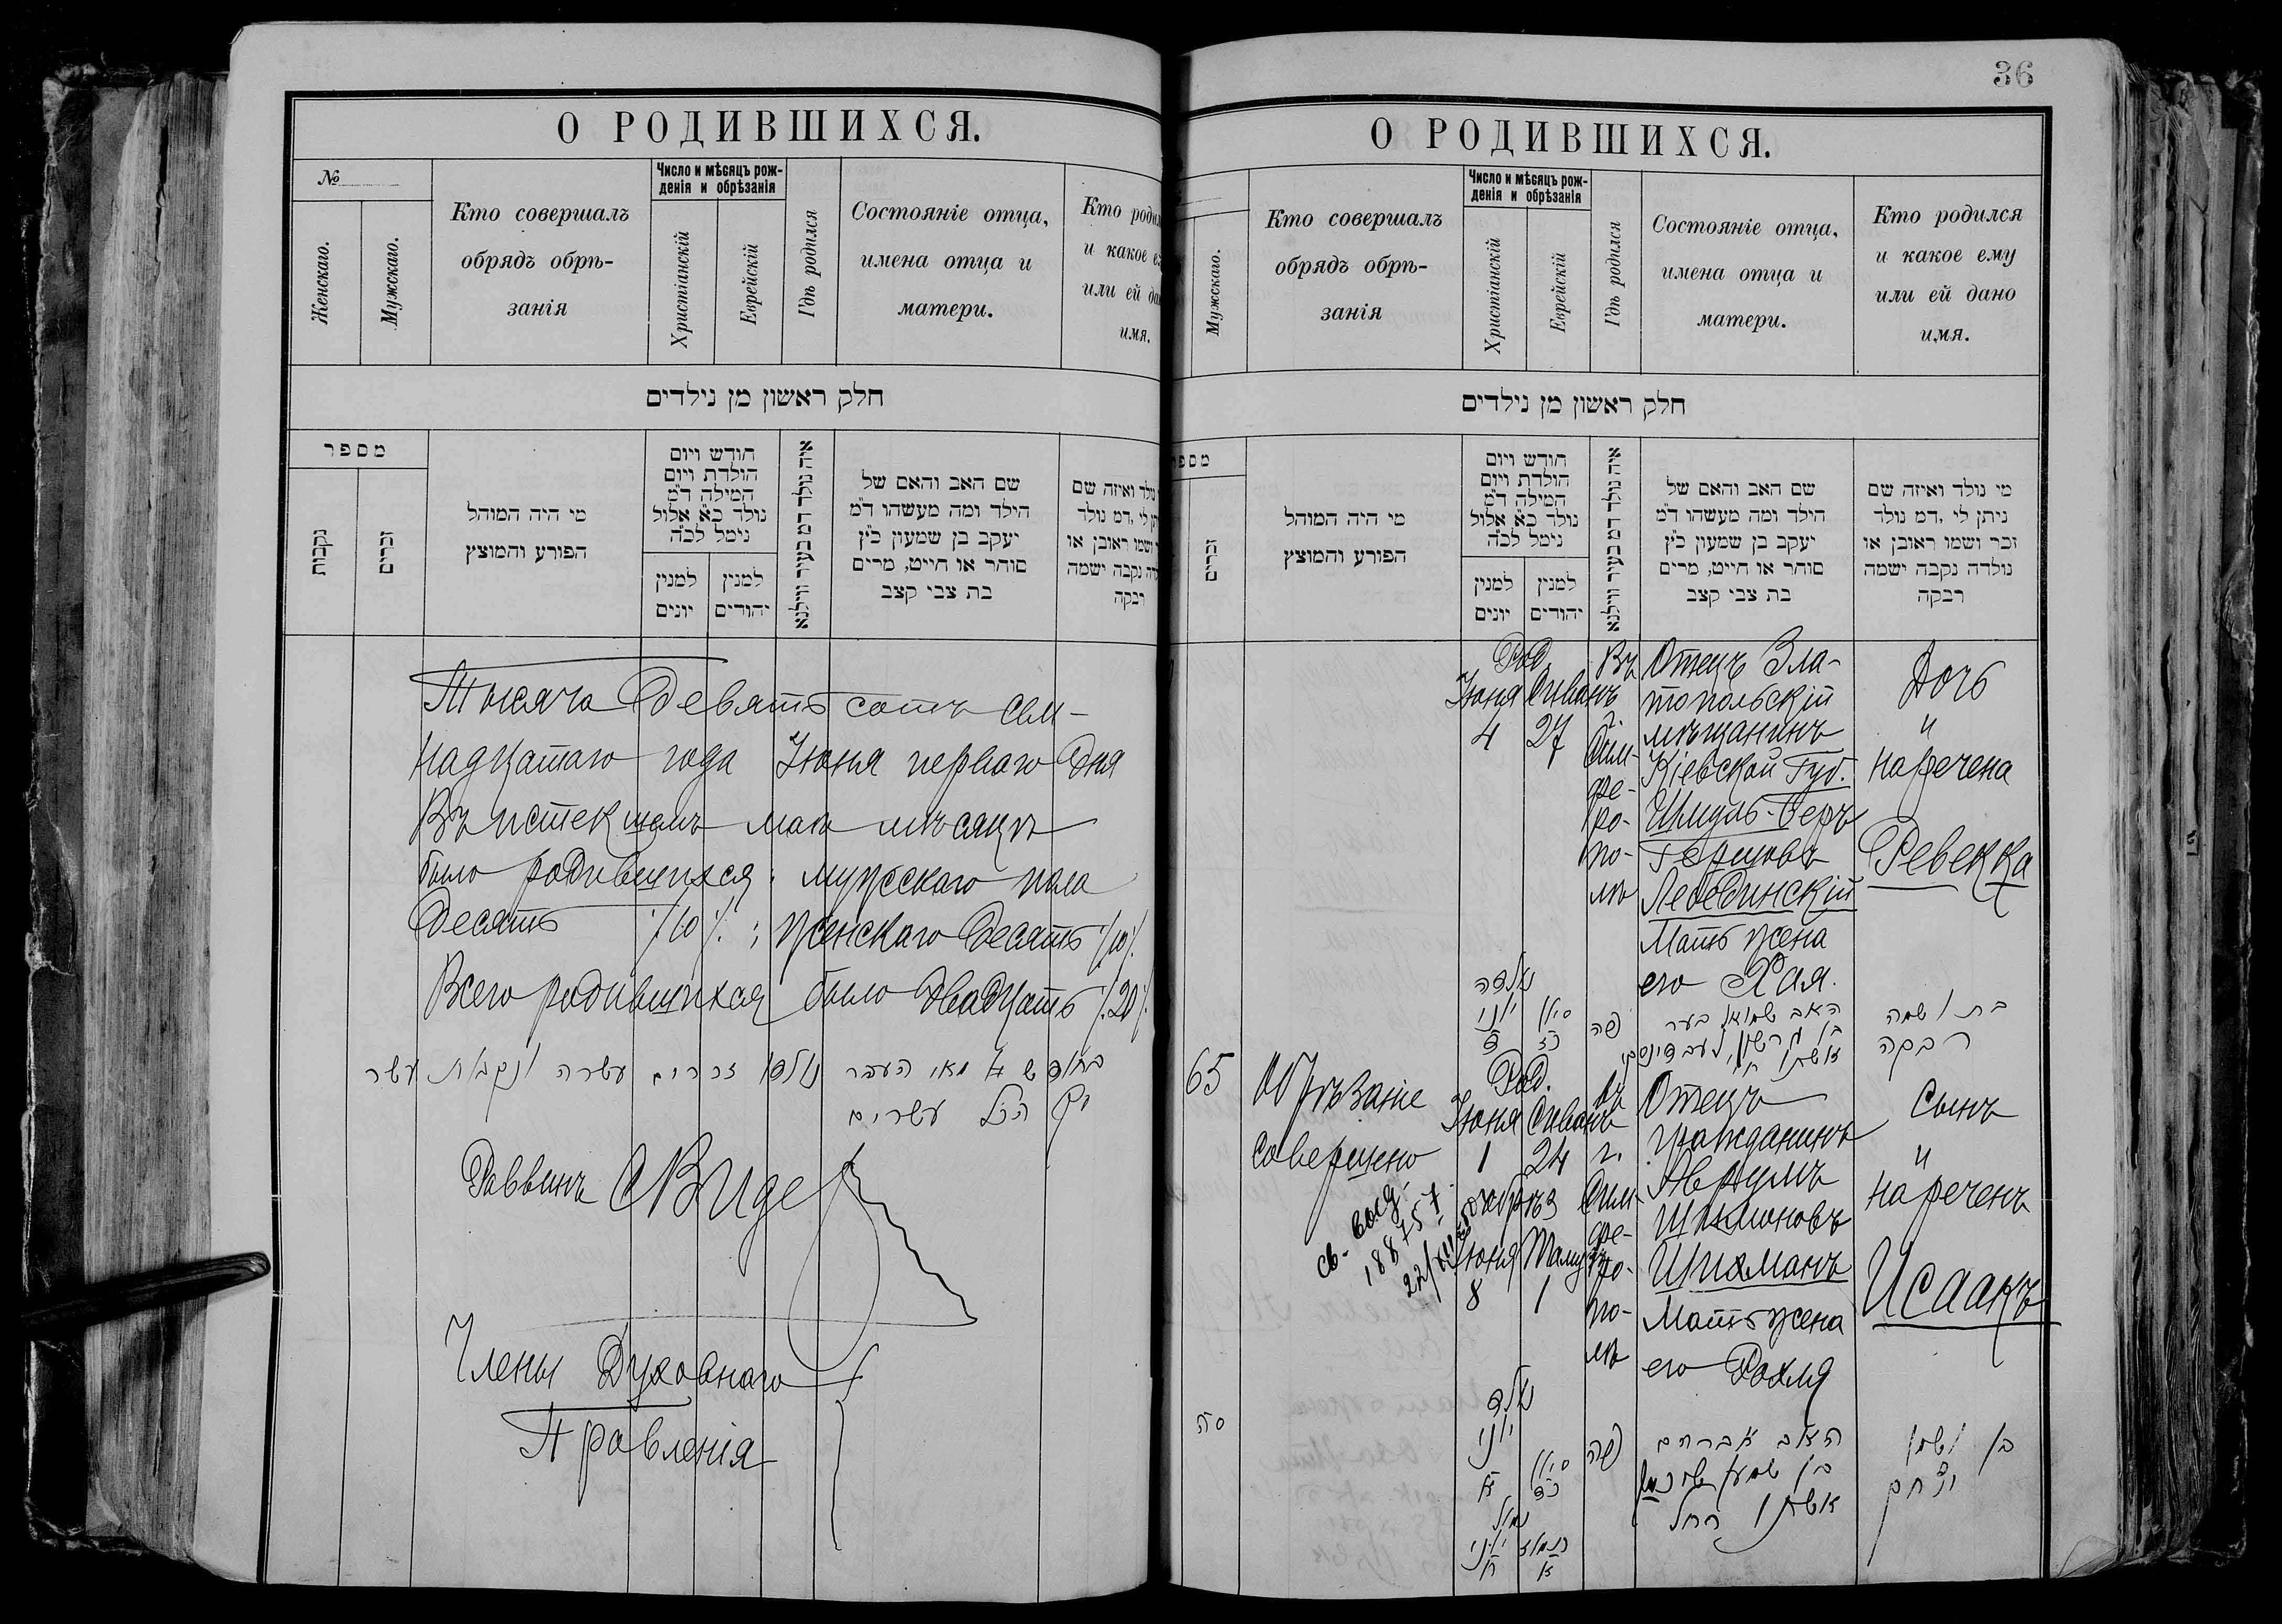 О РОДИВШИХСЯ.
№
Женскаго.
Мужскаго.
Кто совершалъ
обрядъ обрѣ-
занія
Число и мѣсяцъ рож-
денія и обрѣзанія
Христіанскій
Еврейскій
Гдѣ родился
Состояніе отца,
имена отца и
матери.
Кто роди
и какое е
или ей да
имя.
חלק ראשון מן נילדים
מספר
נקבות
זכרים
מי היה המוהל
הפורע והמוצץ
חודש ויום
הולדת ויום
המילה ד"מ
נולד כ"א אלול
נימל לכ"ה
למנין
יונים
למנין
יהודים
איה נולד דמ בעיר ווילנא
שם האב והאם של
הילד ומה מעשהו ד"מ
יעקב בן שמעון כ"ץ
סוחר או חייט, מרים
בת צבי קצב
נולד ואיזה שם
לי ,דמ נולד
ושמו ראובן או
נקבה ישמה
רבקה
Тысяча девятьсотъ сем-
надцатаго года Іюня перваго дня
Въ истекшемъ маѣ мѣсяцѣ
было родившихся: мужескаго пола
десять /10/.; женскаго десять /10/.
Всего родившихся было двадцать /.20/.
בחודש מאי העבר נולדו זכרים עשרה ונקבות עשר
הכל עשרים
Раввинъ
Члены Духовнаго
Правленія
36
О РОДИВШИХСЯ.
Мужскаго.
Кто совершалъ
обрядъ обрѣ-
занія
Число и мѣсяцъ рож-
денія и обрѣзанія
Христіанскій
Еврейскій
Гдѣ родился
Состояніе отца,
имена отца и
матери.
Кто родился
и какое ему
или ей дано
имя.
חלק ראשון מן נילדים
מספ
זכרים
מי היה המוהל
הפורע והמוצץ
חודש ויום
הולדת ויום
המילה ד"מ
נולד כ"א אלול
נימל לכ"ה
למנין
יונים
למנין
יהודים
איה נולד דמ בעיר ווילנא
שם האב והאם של
הילד ומה מעשהו ד"מ
יעקב בן שמעון כ"ץ
סוחר או חייט, מרים
בת צבי קצב
מי נולד ואיזה שם
ניתן לי ,דמ נולד
זכר ושמו ראובן או
נולדה נקבה ישמה
רבקה
Род.
Іюня Сиванъ
4 27
Въ
г.
Сим-
фе-
ро-
по-
лѣ
Отецъ Зла-
топольскій
мѣщанинъ
Кіевской Губ.
Шмуль-Беръ
Гершовъ
Лебединскій
Мать жена
его Хая.
Дочь
и
наречена
Ревекка
נולדה
יוני סיון
ד כז
פה
האב שמואל בער
בן גרשון לעבדינסקי
בת ושמה
רבקה
65
Обрѣзаніе
совершено
св. выд.
188757
Род.
Іюня Сиванъ
1 24
обрѣз
Іюня Тамузъ
8 1
въ
г.
Сим-
фе-
ро-
по-
лѣ
Отецъ
гражданинъ
Аврумъ
Шимоновъ
Шихманъ
Мать жена
его Рахля
Сынъ
и
нареченъ
Исаакъ
סה
נולד
יוני סיון
א כד
נמול
יוני תמוז
ח א
פה
האב אברהם
בן שמעון שיכמאן
אשתו רחל
בן ושמו
יצחק